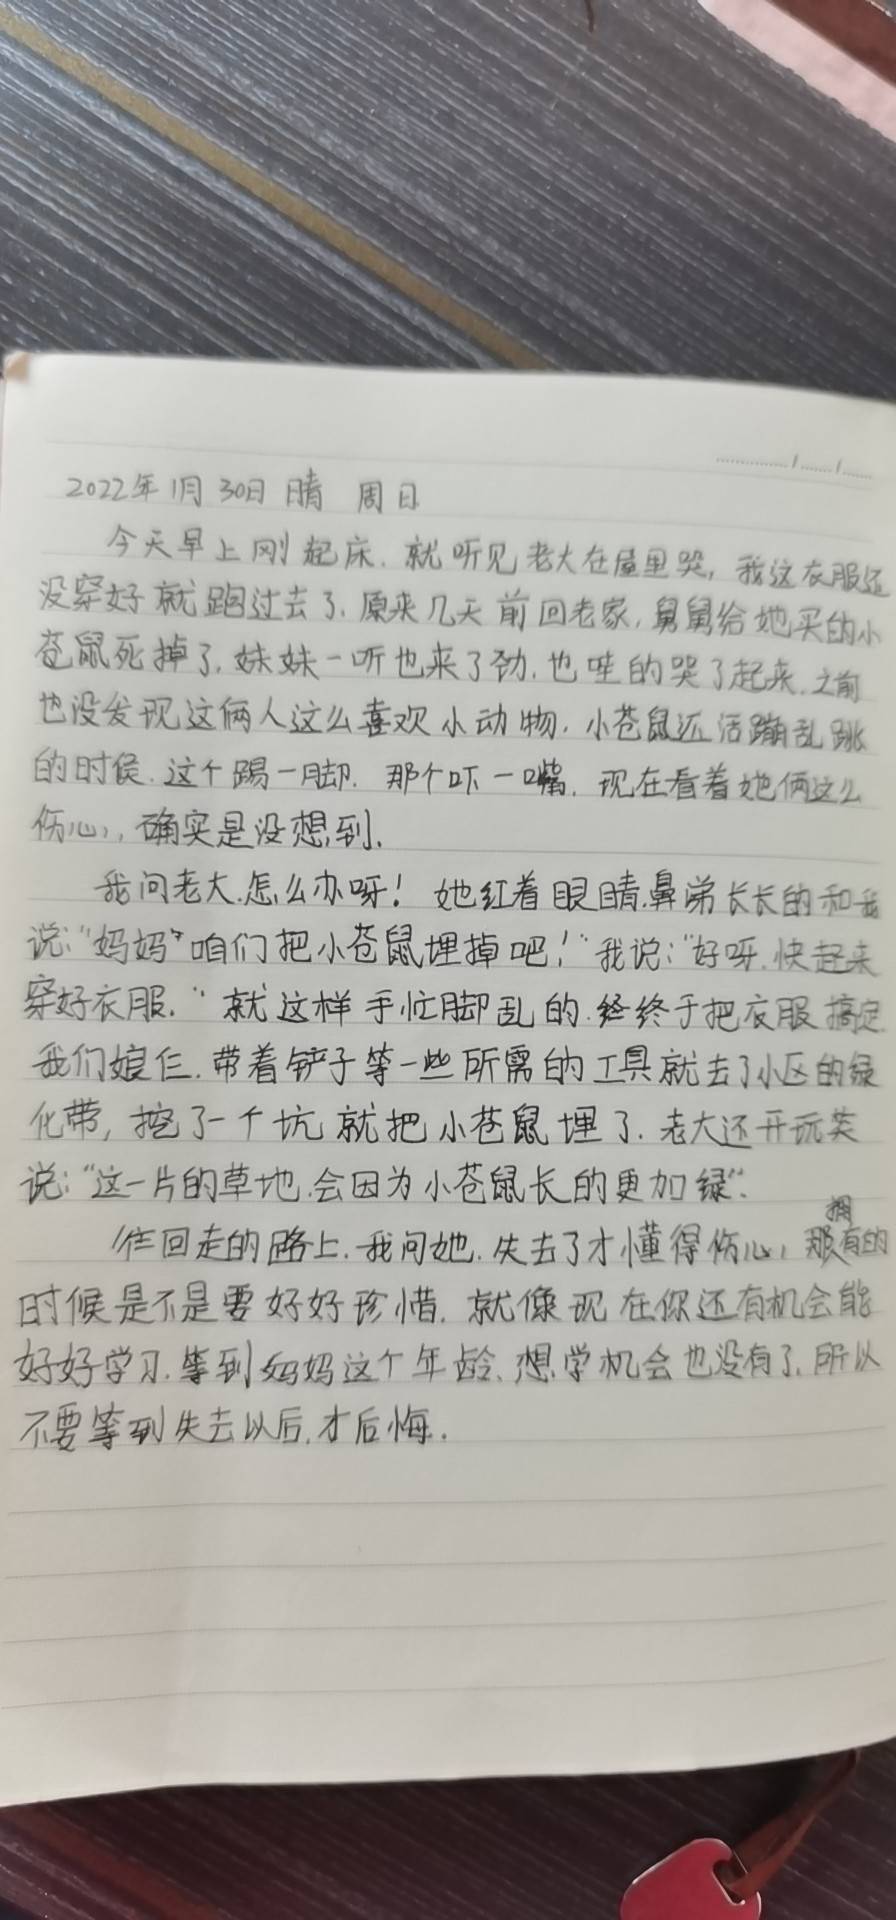 2022年1月30日 晴 周日
今天早上刚起床.就听见老大在屋里哭,我这衣服还
没穿好就跑过去了.原来几天前回老家,舅舅给她买的小
苍鼠死掉了.妹妹一听也来了劲.也哇的哭了起来.之前
也没发现这俩人这么喜欢小动物.小苍鼠还活蹦乱跳
的时候.这个踢一脚.那个吓一嘴.现在看着她俩这么
伤心,确实是没想到.
我问老大.怎么办呀!她红着眼睛.鼻涕长长的和我
说:“妈妈”咱们把小苍鼠埋掉吧!”我说:“好呀.快起来
穿好衣服.”就这样手忙脚乱的.终于把衣服搞定
我们娘仨.带着铲子等一些所需的工具就去了小区的绿
化带,挖了一个坑就把小苍鼠埋了.老大还开玩笑
说:“这一片的草地.会因为小苍鼠长的更加绿”.
往回走的路上.我问她.失去了才懂得伤心,那拥有的
时候是不是要好好珍惜.就像现在你还有机会能
好好学习.等到妈妈这个年龄.想学机会也没有了.所以
不要等到失去以后.才后悔.